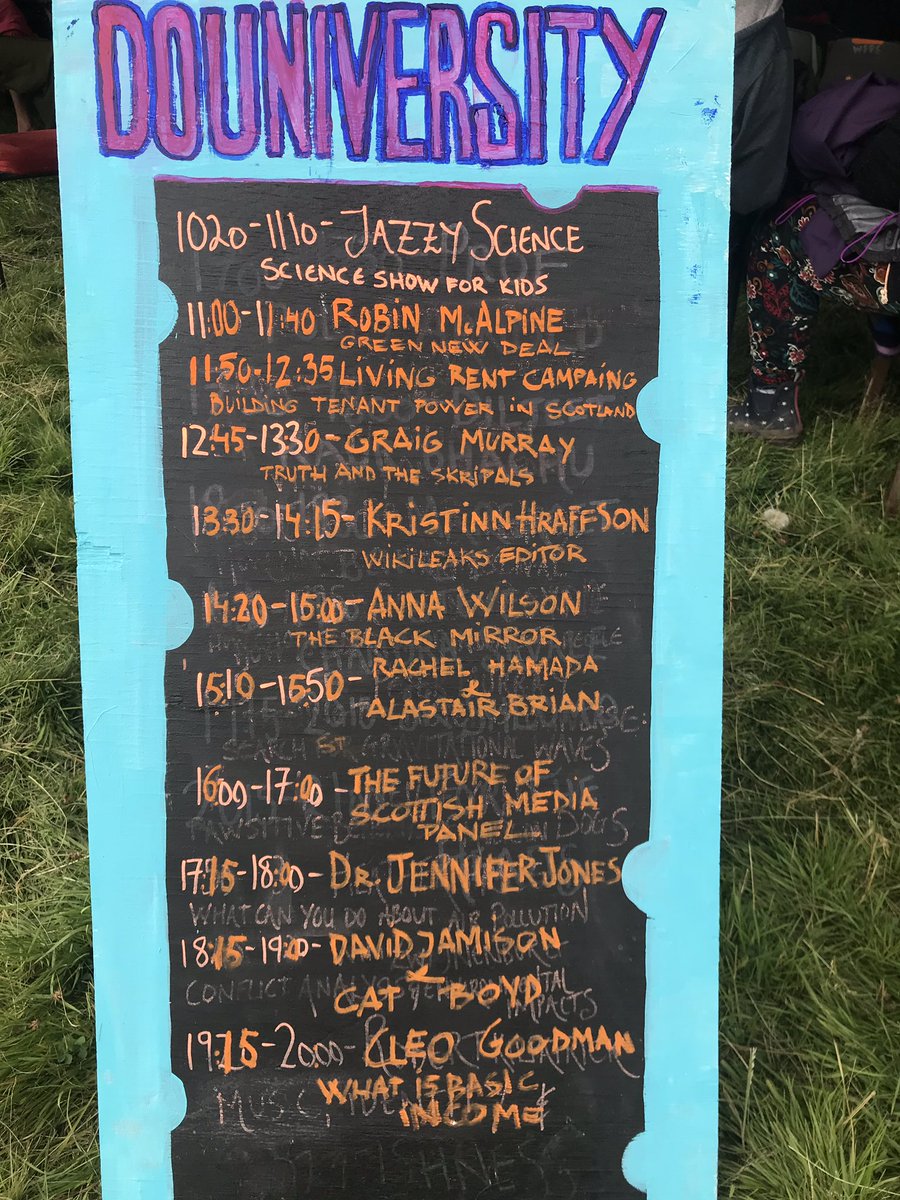 DOUNIVERSITY
1020-1110-JAZZY SCIENCE
SCIENCE SHOW FOR KIDS
11:00-11:40 ROBIN McALPINE
GREEN NEW DEAL
11:50-12:35 LIVING RENT CAMPAING
BUILDING TENANT POWER IN SCOTLAND
12:45-1330-GRAIG MURRAY
TRUTH AND THE SKRIPALS
13:30-14:15-KRISTINN HRAFFSON
WIKILEAKS EDITOR
14:20-15:00-ANNA WILSON
THE BLACK MIRROR
15:10-15:50-RACHEL HAMADA
& ALASTAIR BRIAN
SEARCH GRAVITATIONAL WAVES
16:00-17:00-THE FUTURE OF
SCOTTISH MEDIA
PANEL
DOGS
17:15-18:00-DR. JENNIFER JONES
WHAT CAN YOU DO ABOUT AIR POLLUTION
18:15-19:00-DAVID JAMISON
&
CAT BOYD
CONFLICT
IMPACTS
19:15-20:00-CLEO GOODMAN
WHAT IS BASIC
INCOME
MUSIC